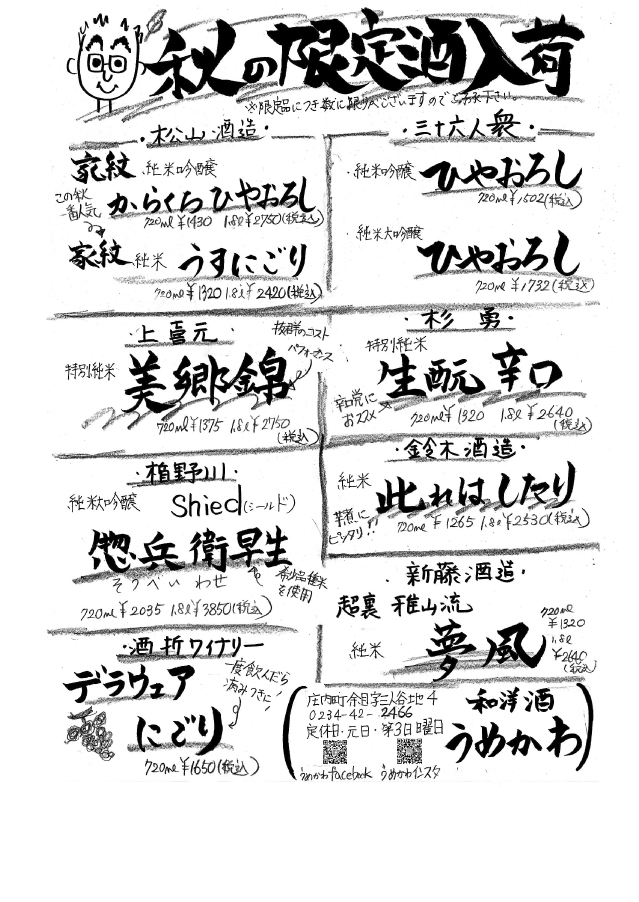 秋の限定酒入荷
※限定品につき数に限りがございますのでご了承下さい。
・松山酒造・
家紋 純米吟醸
この秋
一番人気
からくち ひやおろし
720ml ¥1430 1.8l ¥2750(税込)
家紋 純米 うすにごり
720ml ¥1320 1.8l ¥2420(税込)
・三十六人衆・
・純米吟醸 ひやおろし
720ml ¥1502(税込)
・純米大吟醸
ひやおろし
720ml ¥1732(税込)
・上喜元・
抜群のコスト
パフォーマンス
特別純米 美郷錦
720ml ¥1375 1.8l ¥2750
(税込)
・杉勇・
特別純米
生酛 辛口
辛口党に
おススメ
720ml ¥1320 1.8l ¥2640
(税込)
・楯野川・
純米大吟醸 Shied(シールド)
惣兵衛早生
そうべい わせ
希少品種米
を使用
720ml ¥2035 1.8l ¥3850(税込)
・鈴木酒造・
純米 此れはしたり
芋煮に
ピッタリ!!
720ml ¥1265 1.8l ¥2530(税込)
・新藤酒造・
超裏 雅山流
純米 夢風
720ml
¥1320
1.8l
¥2640
(税込)
・酒折ワイナリー
デラウェア
にごり
一度飲んだら
病みつきに!
720ml ¥1650(税込)
庄内町余目字三人谷地4
0234-42-2466
定休日・元日・第3日曜日
うめかわfacebook うめかわインスタ
和洋酒
うめかわ